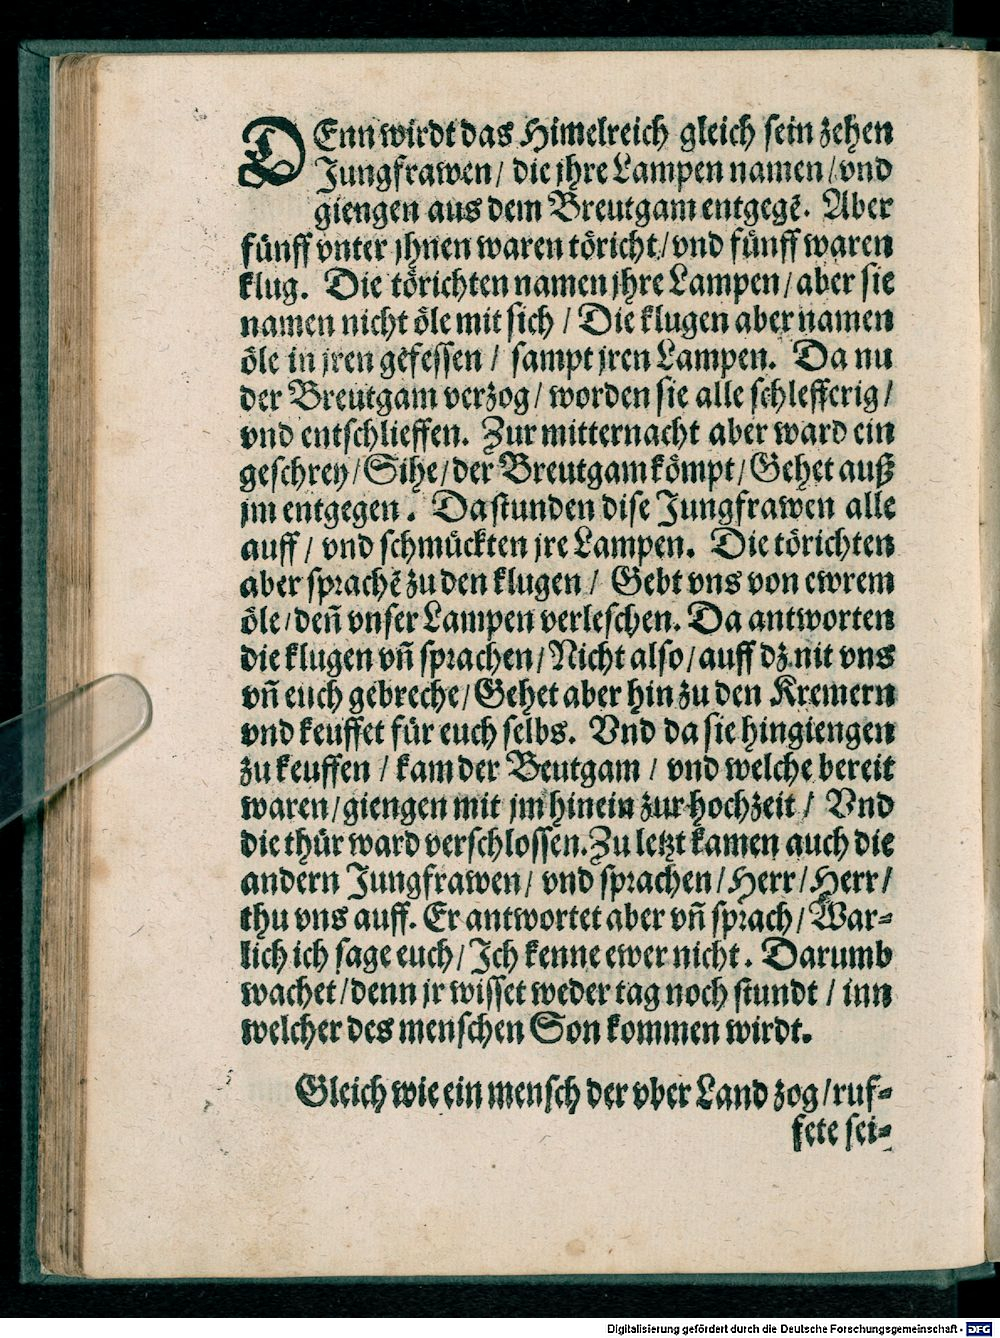 DEnn wirdt das Himelreich gleich sein zehen
Jungfrawen / die jhre Lampen namen / vnd
giengen aus dem Breutgam entgegẽ. Aber
fünff vnter jhnen waren töricht / vnd fünff waren
klug. Die törichten namen jhre Lampen / aber sie
namen nicht öle mit sich / Die klugen aber namen
öle in jren gefessen / sampt jren Lampen. Da nu
der Breutgam verzog / worden sie alle schlefferig /
vnd entschlieffen. Zur mitternacht aber ward ein
geschrey / Sihe / der Breutgam kömpt / Gehet auß
jm entgegen. Da stunden dise Jungfrawen alle
auff / vnd schmückten jre Lampen. Die törichten
aber sprachẽ zu den klugen / Gebt vns von ewrem
öle / deñ vnser Lampen verleschen. Da antworten
die klugen vñ sprachen / Nicht also / auff dz nit vns
vñ euch gebreche / Gehet aber hin zu den Kremern
vnd keuffet für euch selbs. Vnd da sie hingiengen
zu keuffen / kam der Beutgam / vnd welche bereit
waren / giengen mit jm hinein zur hochzeit / Vnd
die thür ward verschlossen. Zu letzt kamen auch die
andern Jungfrawen / vnd sprachen / Herr / Herr /
thu vns auff. Er antwortet aber vñ sprach / War-
lich ich sage euch / Ich kenne ewer nicht. Darumb
wachet / denn jr wisset weder tag noch stundt / inn
welcher des menschen Son kommen wirdt.
Gleich wie ein mensch der vber Land zog / ruf-
fete sei-
Digitalisierung gefördert durch die Deutsche Forschungsgemeinschaft - DFG